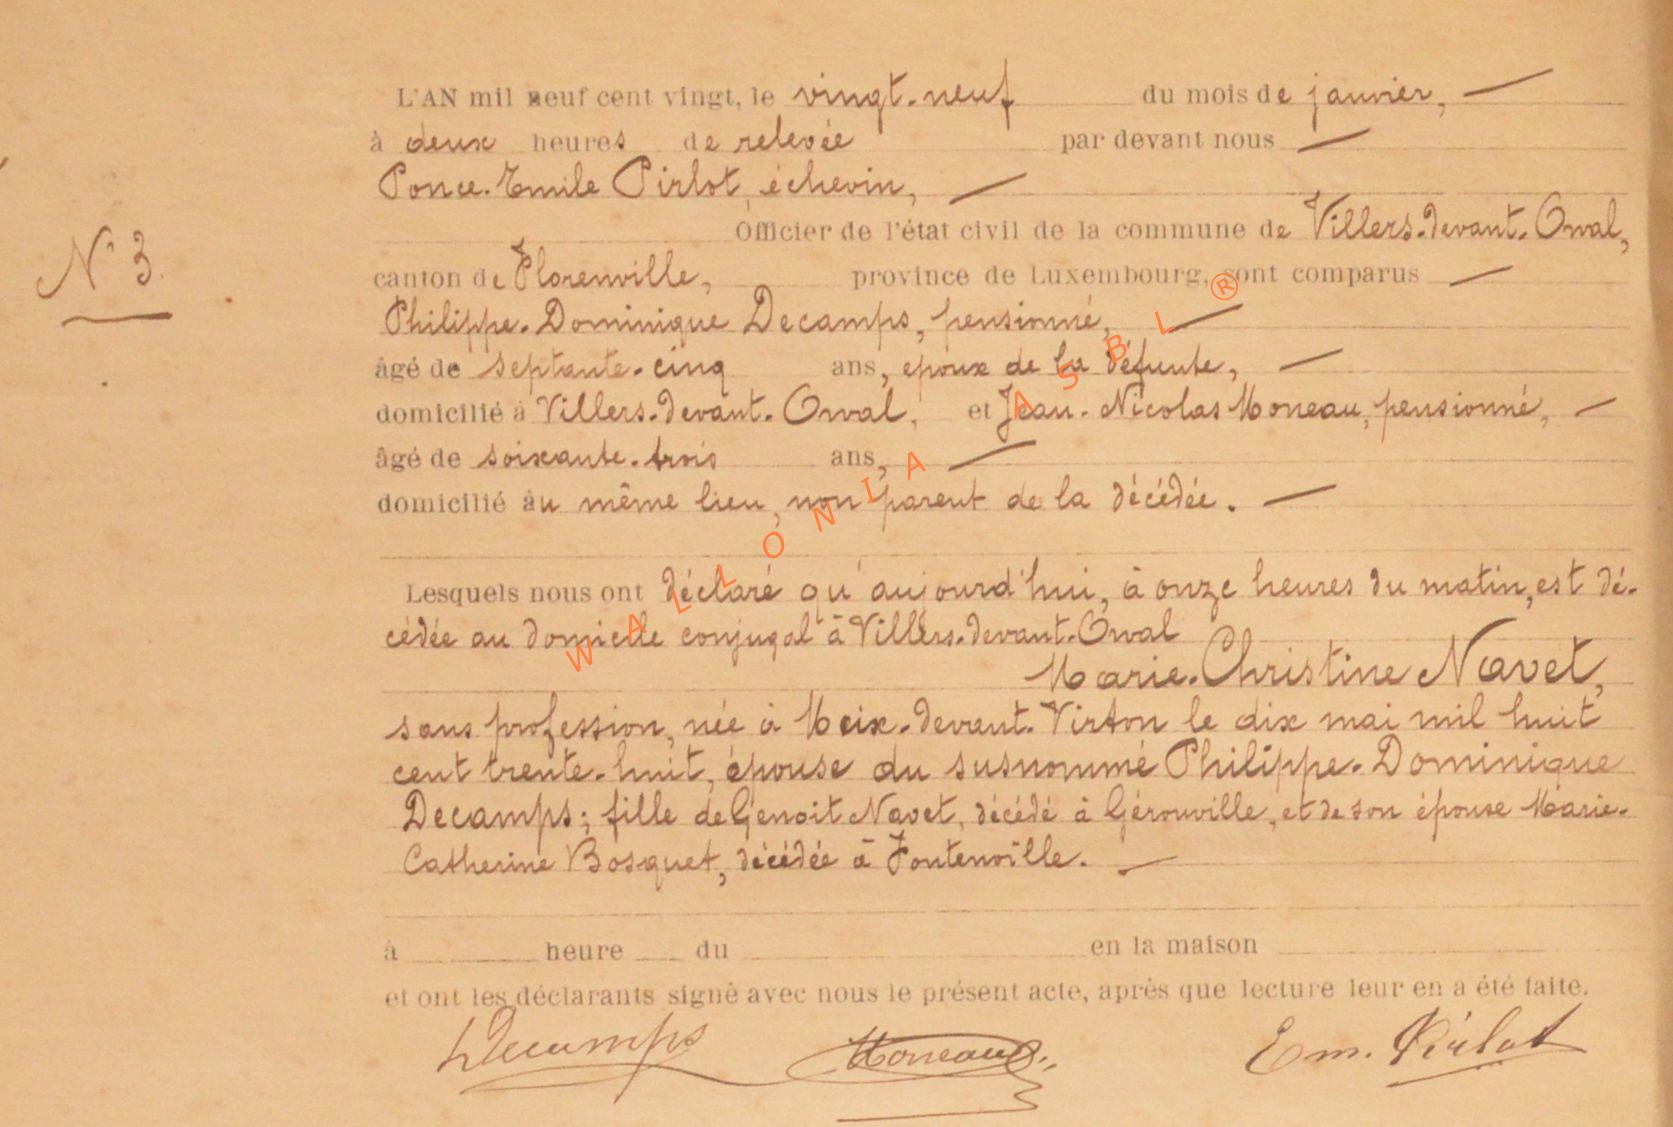 L'AN mil neuf cent vingt, le vingt-neuf du mois de janvier, —
à deux heures de relevée par devant nous —
Ponce-Emile Pirlot, échevin, —
Officier de l'état civil de la commune de Villers-devant-Orval,
N° 3.
canton de Florenville, province de Luxembourg, sont comparus —
Philippe-Dominique Decamps, pensionné, —
âgé de septante-cinq ans, époux de la défunte, —
domicilié à Villers-devant-Orval, et Jean-Nicolas Moneau, pensionné, —
âgé de soixante-trois ans, —
domicilié au même lieu, non parent de la décédée. —
Lesquels nous ont déclaré qu'aujourd'hui, à onze heures du matin, est dé-
cédée au domicile conjugal à Villers-devant-Orval
Marie-Christine Navet,
sans profession, née à Meix-devant-Virton le dix mai mil huit
cent trente-huit, épouse du susnommé Philippe-Dominique
Decamps; fille de Genoit Navet, décédé à Gérouville, et de son épouse Marie-
Catherine Bosquet, décédée à Fontenoille. —
à heure du en la maison
et ont les déclarants signé avec nous le présent acte, après que lecture leur en a été faite.
Decamps Moneau Em. Pirlot
WALLONIA ASBL ®